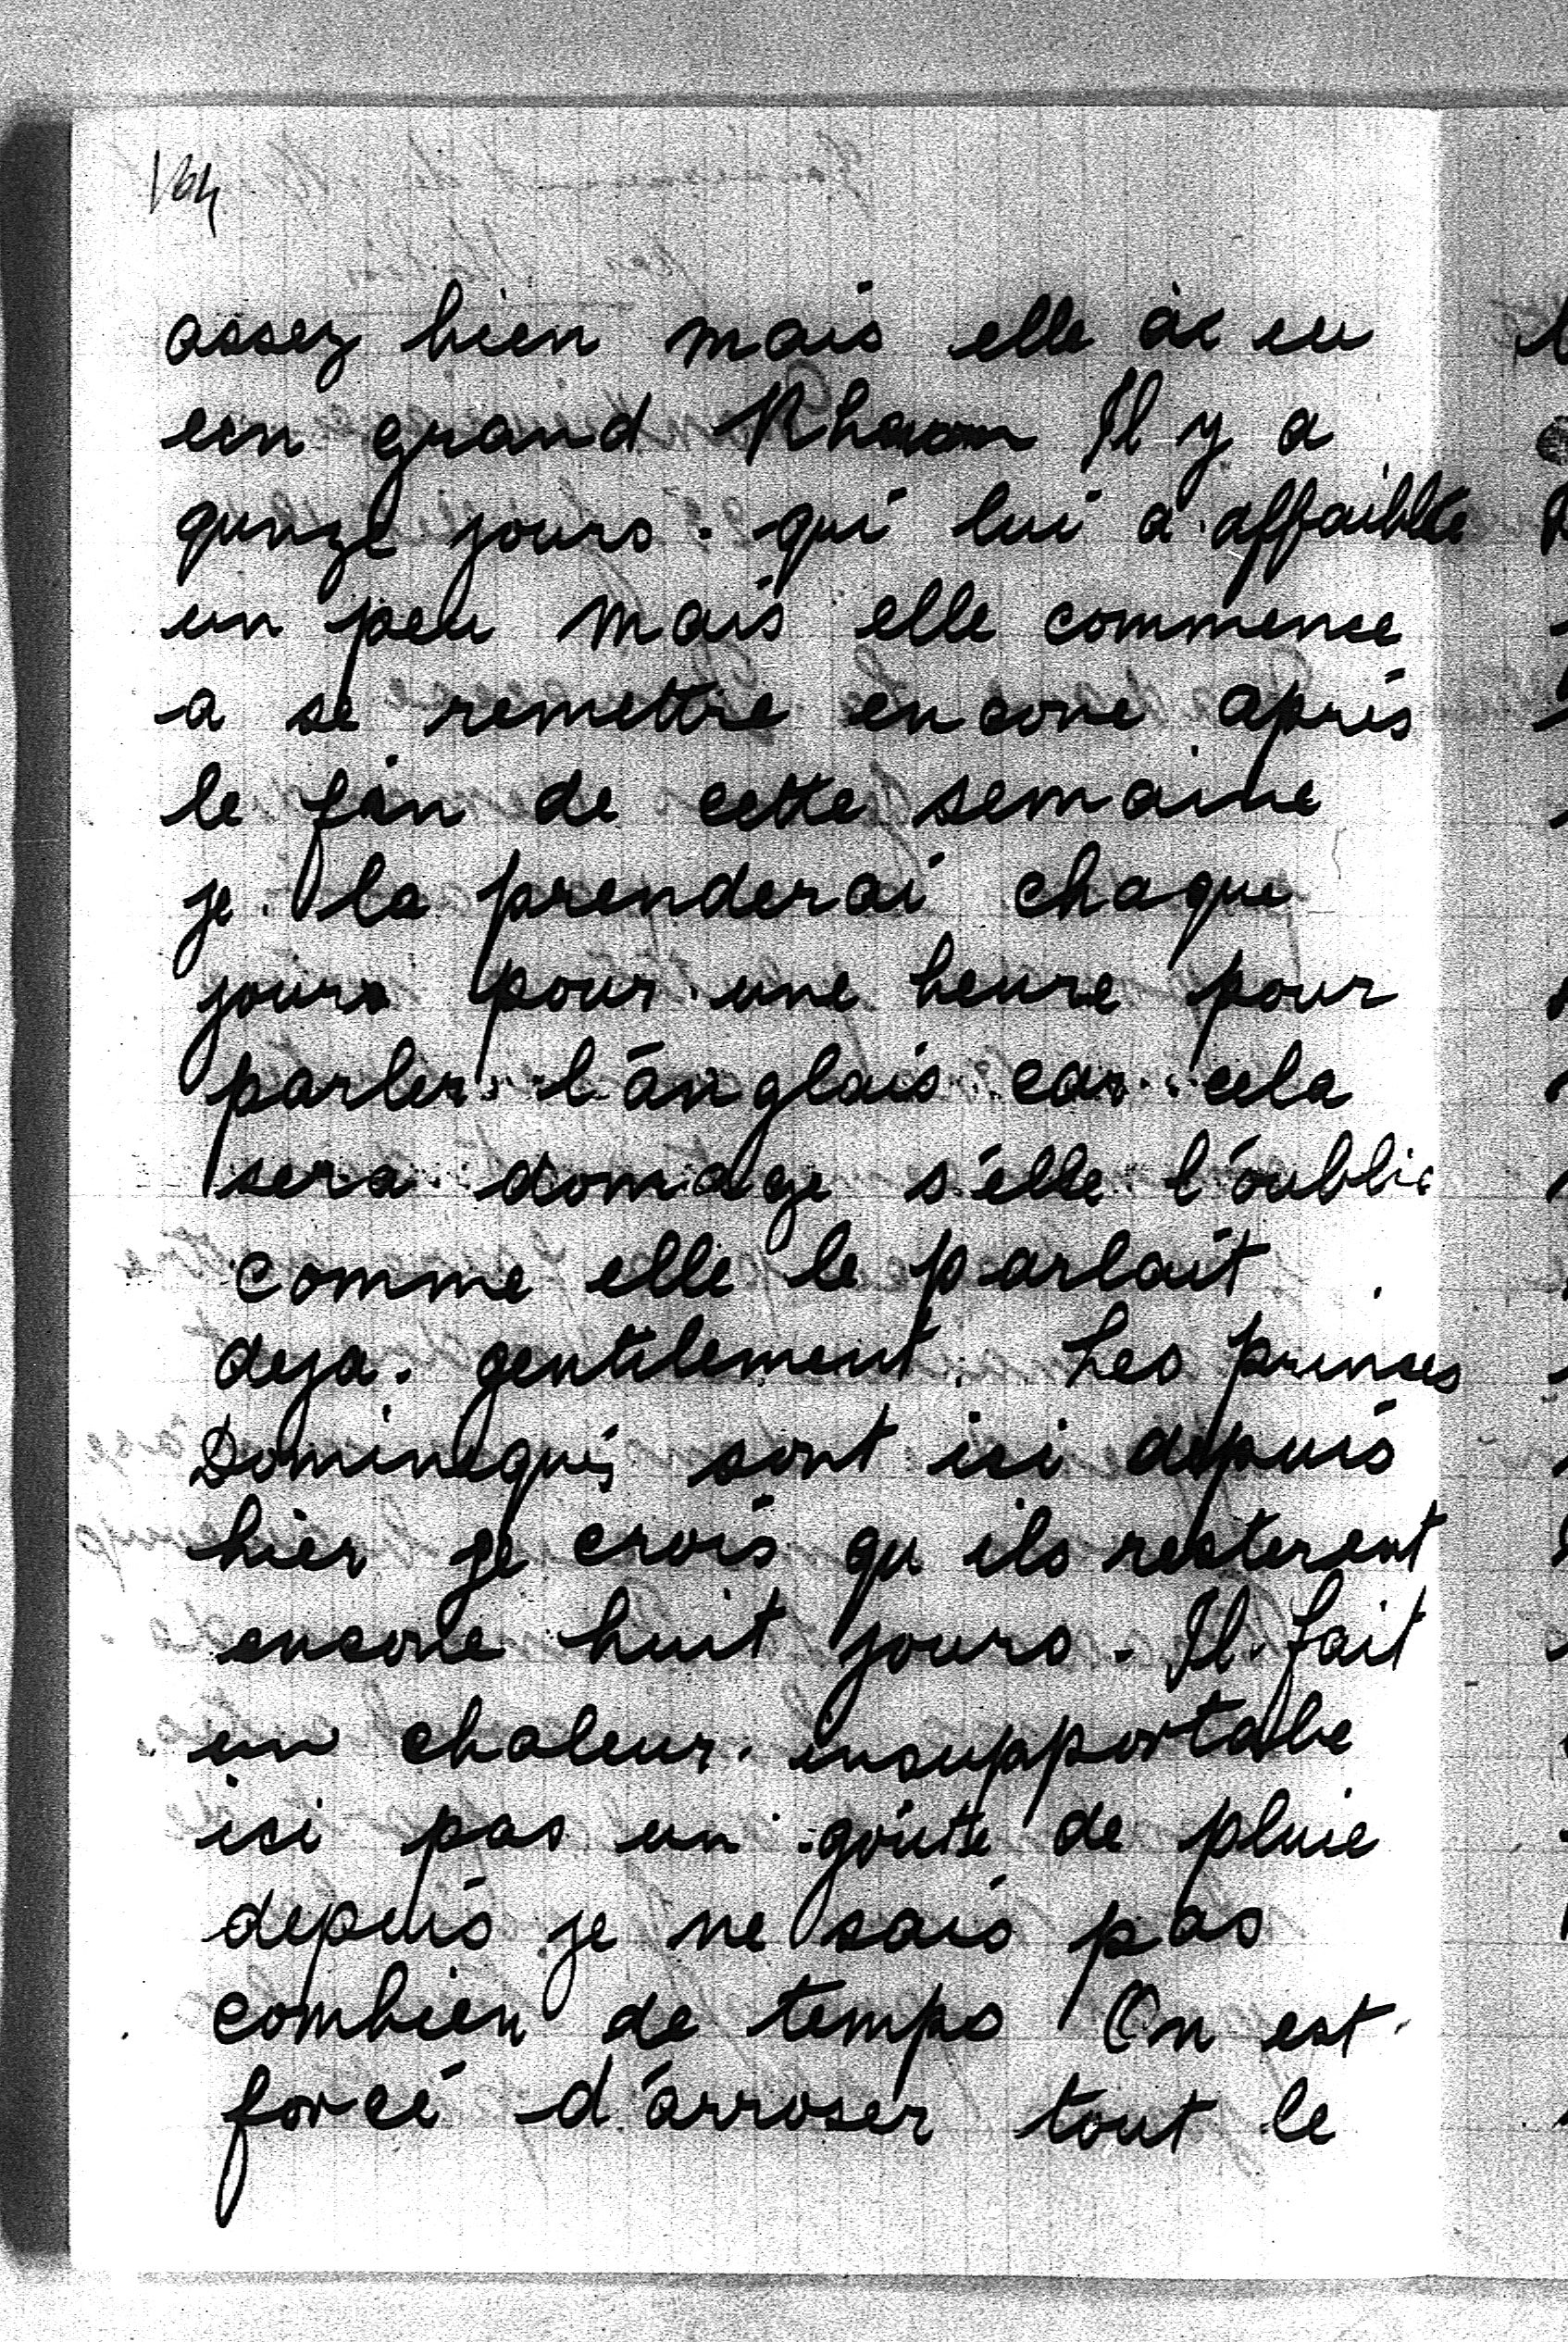 164
assez bien mais elle à eu
eun grand Rhaum Il y a
qunze jours. qui lui a affaiblite
un peu mais elle commence
a se remettre encore après
le fin de cette semaine
je la prenderai chaque
jours pour une heure pour
parler l'ánglais car cela
sera domage s'élle l'óublie
comme elle le parlait
deja. gentilement. Les princes
Dominiqués sont ici depuis
hier je crois qu ils resterent
encore huit jours. Il fait
un chaleur insupportabe
ici pas un goute de pluie
depuis je ne sais pas
combien de temps On est
forcé d'árroser tout le